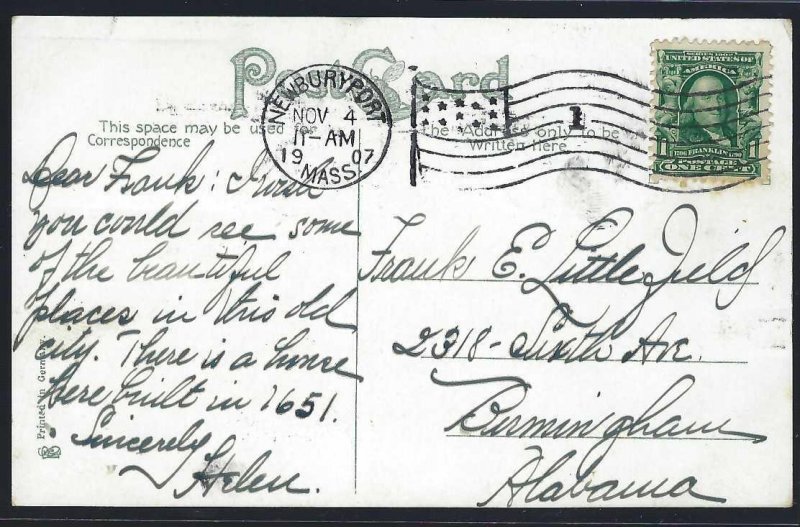 Post Card
This space may be used for
Correspondence
The Address only to be
Written Here
NEWBURYPORT
NOV 4
11-AM
1907
MASS.
1
SERIES 1902
UNITED STATES OF
AMERICA
1706 FRANKLIN 1790
POSTAGE
1 ONE CENT 1
Dear Frank: I wish
you could see some
of the beautiful
places in this old
city. There is a house
here built in 1651.
Sincerely
Helen.
Frank E. Littlefield
2318 - Sixth Ave.
Birmingham
Alabama
Printed in Germany